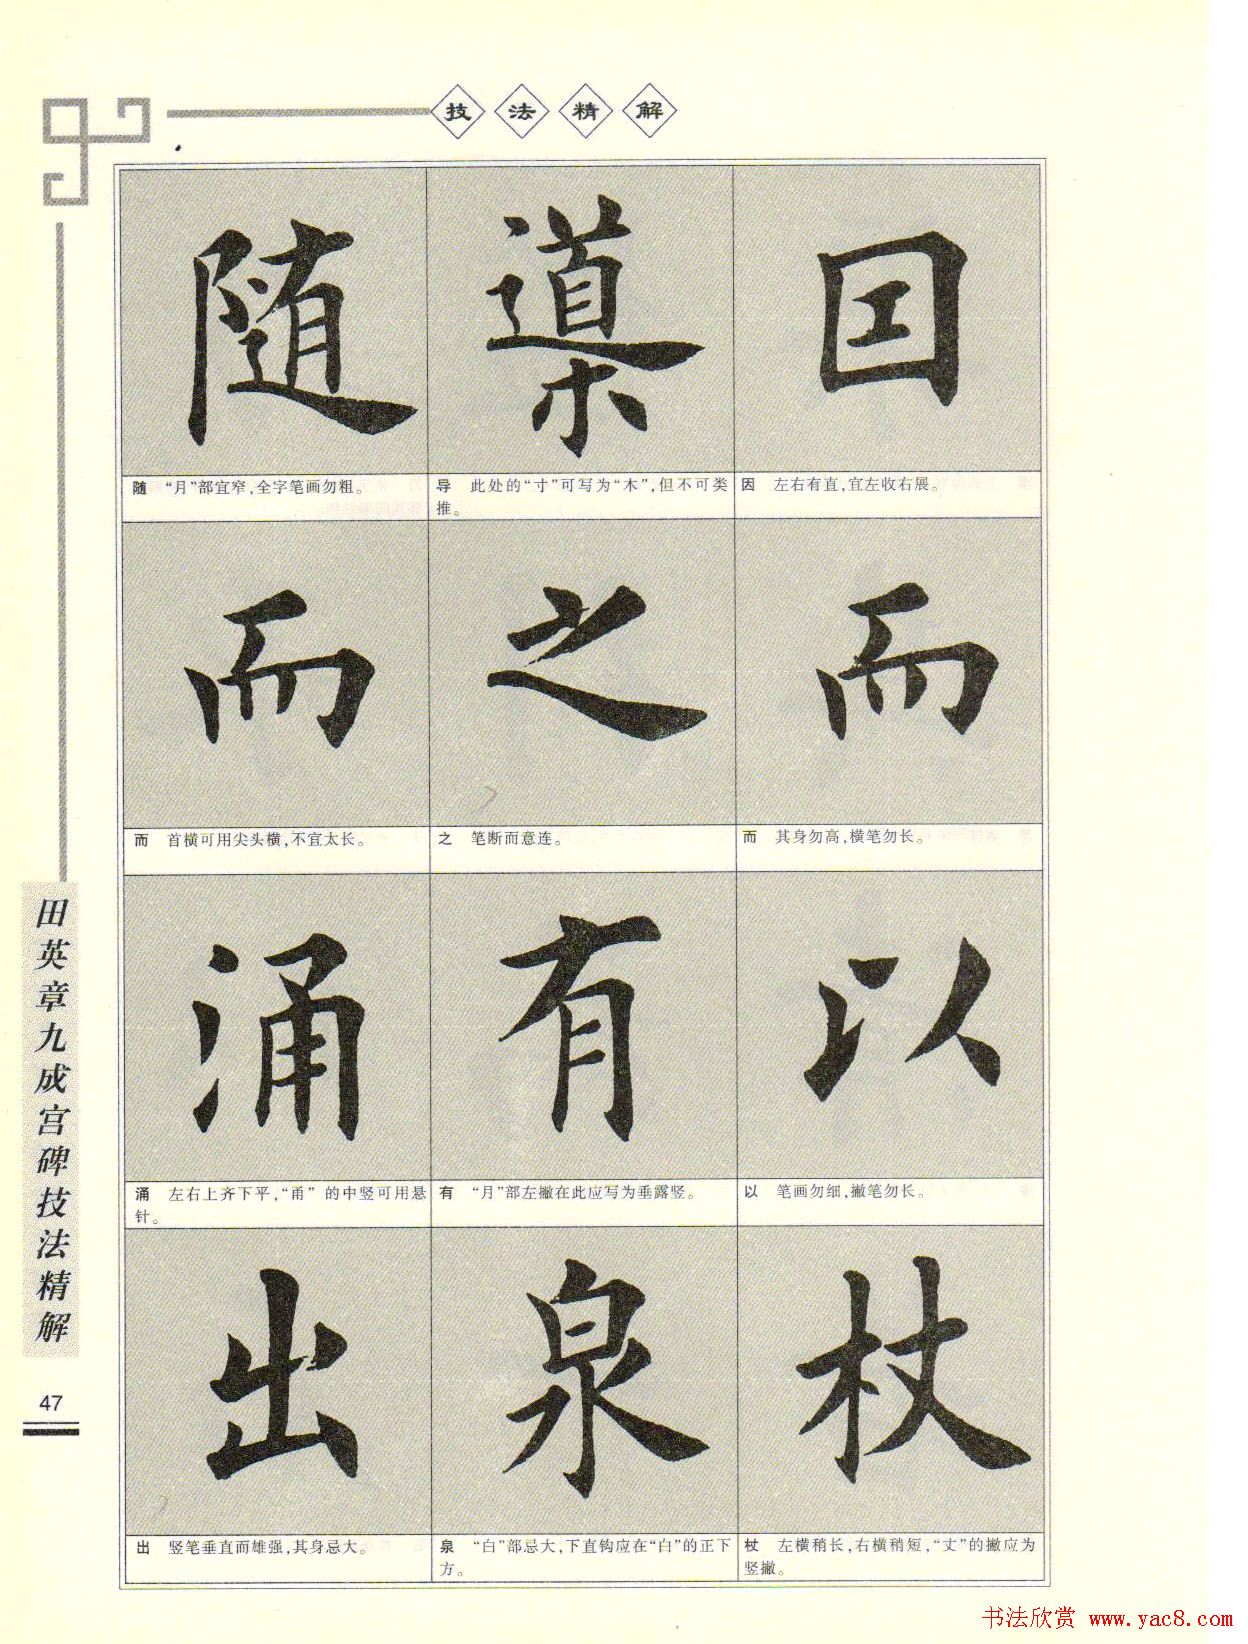 技法精解
囙
因 左右有直,宜左收右展。
而
而 其身勿高,横笔勿长。
以
以 笔画勿细,撇笔勿长。
杖
杖 左横稍长,右横稍短,“丈”的撇应为
竖撇。
導
导 此处的“寸”可写为“木”,但不可类
推。
之
之 笔断而意连。
有
有 “月”部左撇在此应写为垂露竖。
泉
泉 “白”部忌大,下直钩应在“白”的正下
方。
随
随 “月”部宜窄,全字笔画勿粗。
而
而 首横可用尖头横,不宜太长。
涌
涌 左右上齐下平,“甬”的中竖可用悬
针。
出
出 竖笔垂直而雄强,其身忌大。
田英章九成宫碑技法精解
47
书法欣赏 www.yac8.com